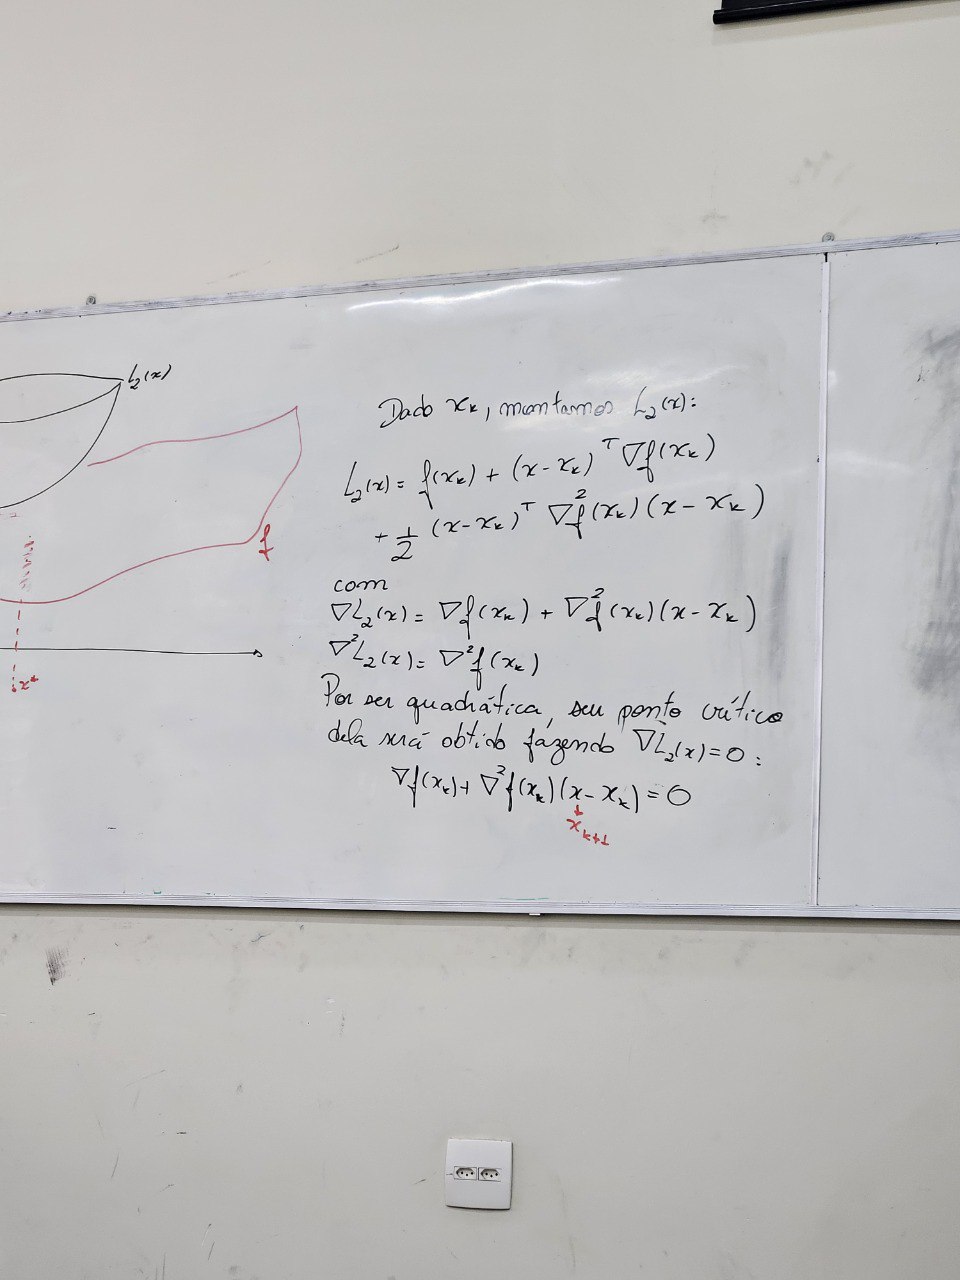 L₂(x)
f
x*
Dado xₖ, montamos L₂(x):
L₂(x) = f(xₖ) + (x - xₖ)ᵀ ∇f(xₖ)
+ 1/2 (x - xₖ)ᵀ ∇²f(xₖ)(x - xₖ)
com
∇L₂(x) = ∇f(xₖ) + ∇²f(xₖ)(x - xₖ)
∇²L₂(x) = ∇²f(xₖ)
Por ser quadrática, seu ponto crítico
dela será obtido fazendo ∇L₂(x) = 0:
∇f(xₖ) + ∇²f(xₖ)(x - xₖ) = 0
xₖ₊₁